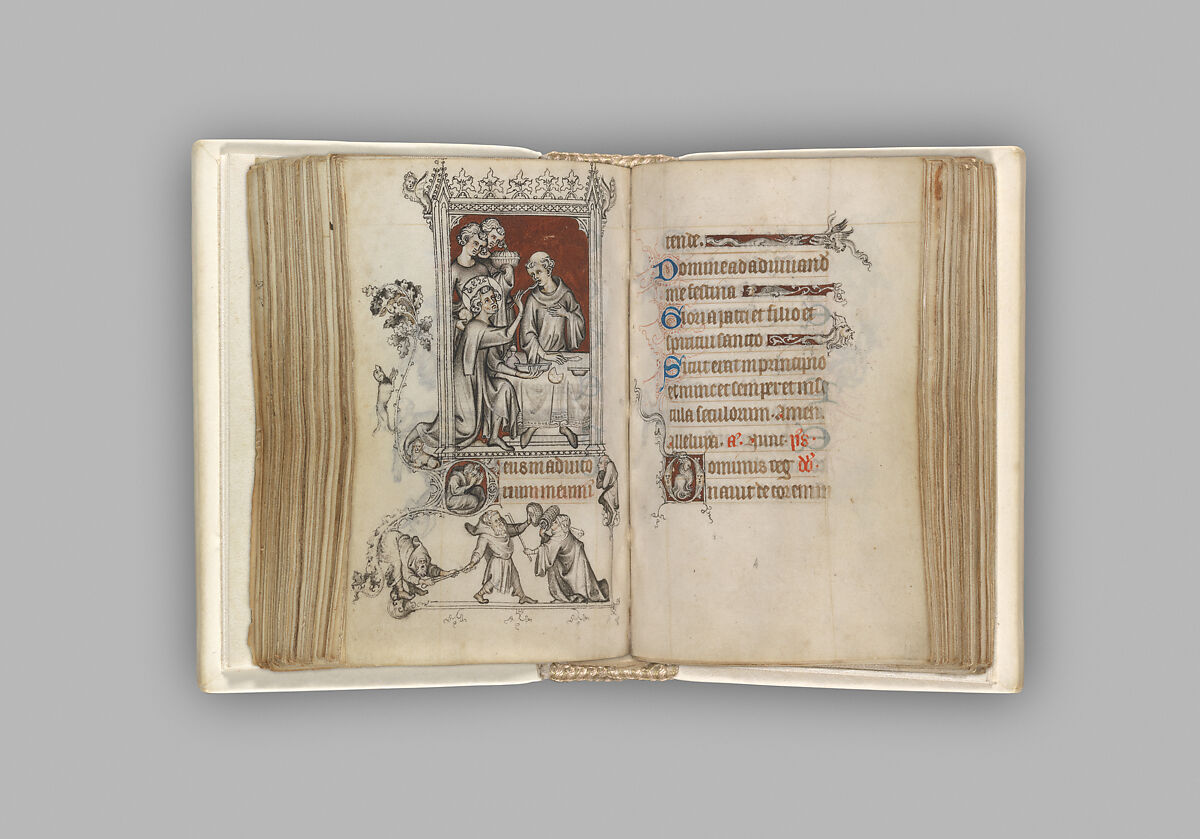 eus in adiuto
rium meum i
tende.
Domine ad adiuuand
me festina
Gloria patri et filio et
spiritui sancto
Sicut erat in principio
et nunc et semper et in se
cula seculorum. amen.
alleluya. a. p̄s.
ominus reg